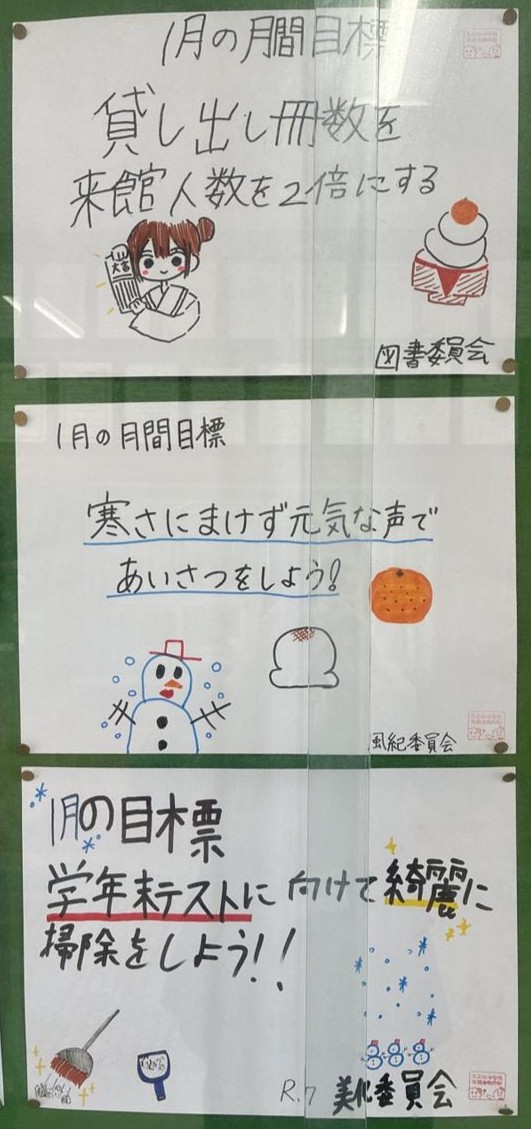 1月の月間目標
貸し出し冊数を
来館人数を2倍にする
大吉
図書委員会
1月の月間目標
寒さにまけず元気な声で
あいさつをしよう!
風紀委員会
1月の目標
学年末テストに向けて綺麗に
掃除をしよう!!
R.7 美化委員会